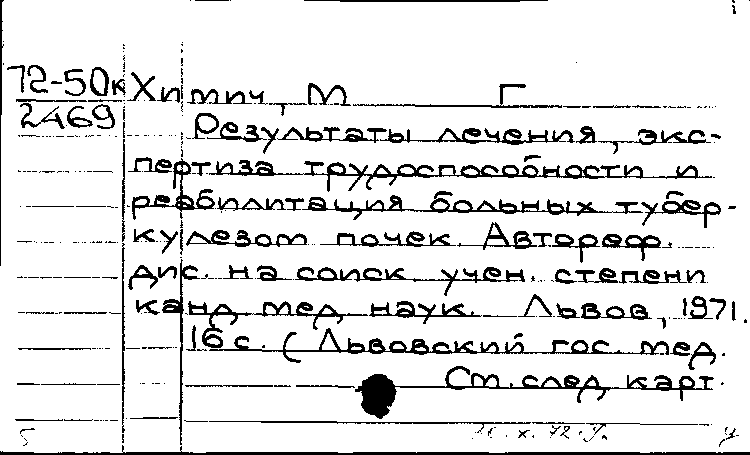 72-50к Химич, М Г
2469
Результаты лечения, экс-
пертиза трудоспособности и
реабилитация больных тубер-
кулезом почек. Автореф.
дис. на соиск. учен. степени
канд. мед. наук. Львов, 1971.
16 с. (Львовский гос. мед.
См. след. карт.
5 у